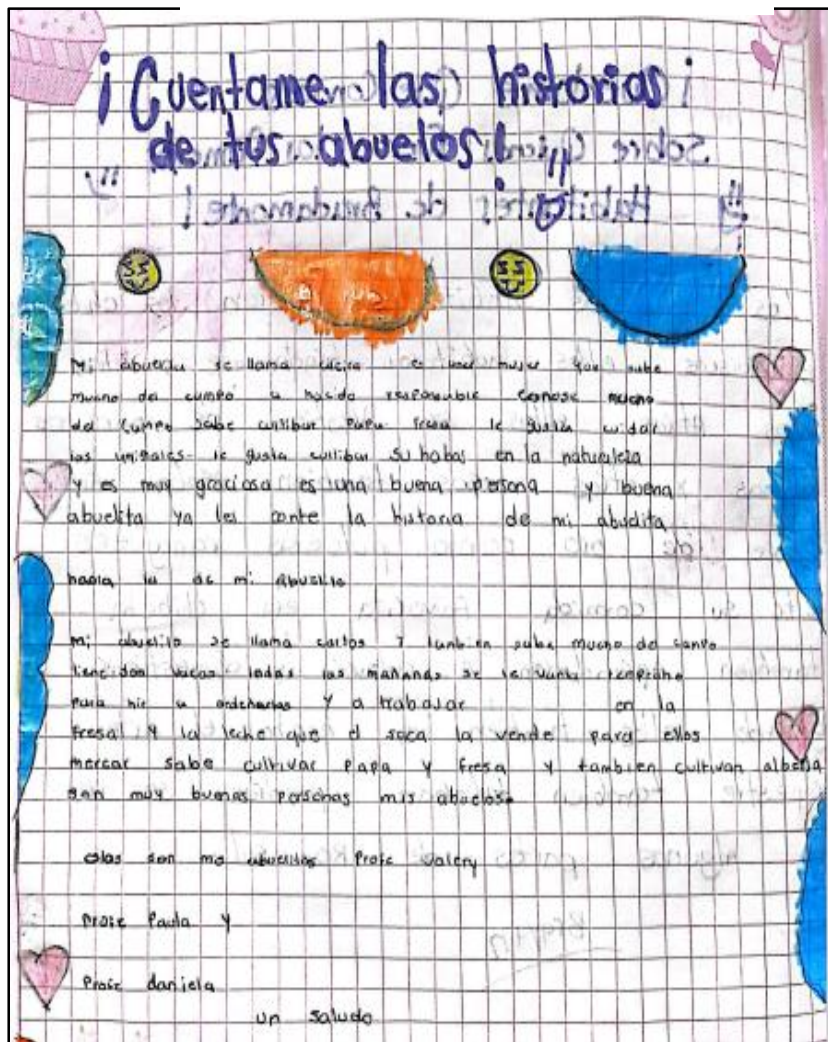 ¡Cuentame las historias¡
de tus abuelos!
Mi abuelita se llama es una mujer que sabe
mucho del campo a hacido responsable conose mucho
del campo sabe cultibar papa fresa le gusta cuidar
los animales le gusta cultibar su habas en la naturaleza
y es muy graciosa es una buena persona y buena
abuelita ya les conte la historia de mi abuelita
haora la de mi abuelito
Mi abuelito se llama carlos y tanbien sabe mucho del canpo
tiene dos vacas todas las mañanas se le vanta temprano
para hir a ordeñarlas Y a trabajar en la
fresa Y la leche que el saca la vende para ellos
mercar sabe cultivar Papa y fresa y tambien cultivan alberja
son muy buenas personas mis abuelos
estos son mis abuelitos Profe Valery
Profe Paula Y
Profe daniela
un saludo